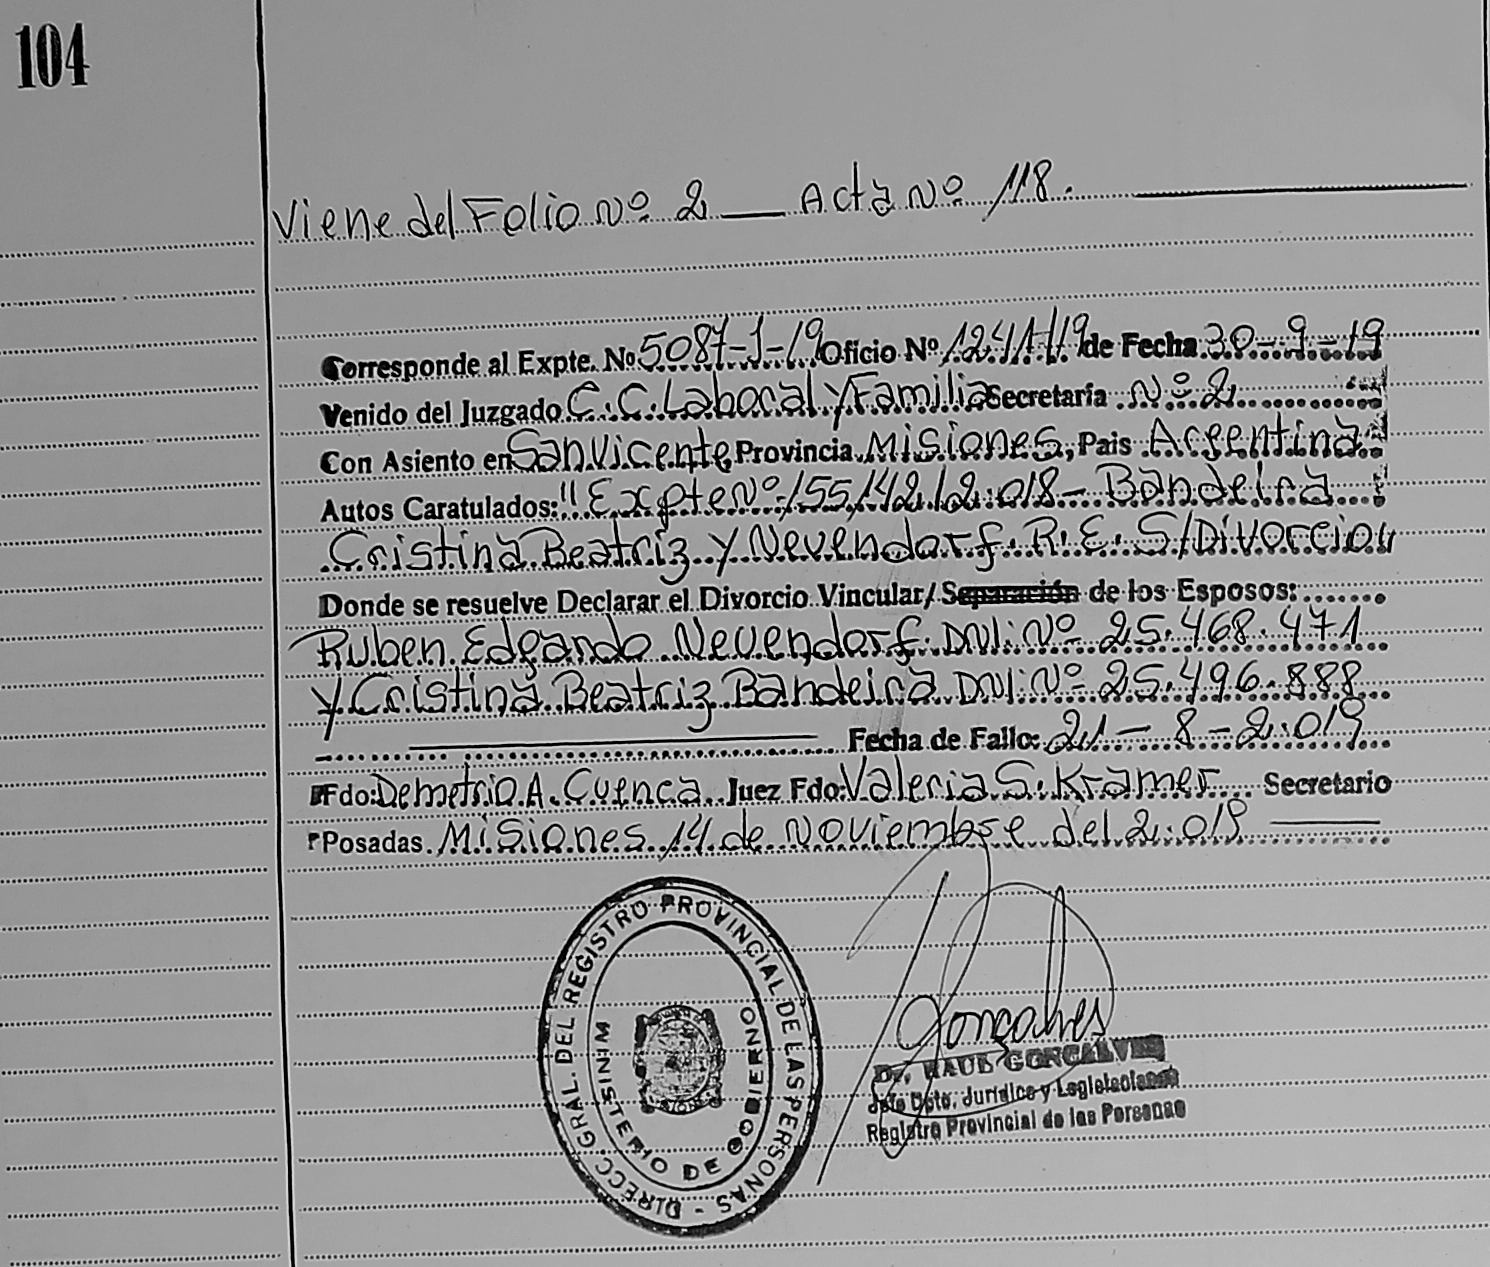 104
Viene del Folio Nº 2 — Acta Nº 118.
Corresponde al Expte. Nº 5087-J-19 Oficio Nº 1241/19 de Fecha 30-9-19
Venido del Juzgado C.C. Laboral y Familia Secretaría Nº 2
Con Asiento en San Vicente Provincia Misiones, Pais Argentina
Autos Caratulados: "Expte Nº 155142/2.018- Bandeira
Cristina Beatriz y Nevendorf R.E. S/Divorcio"
Donde se resuelve Declarar el Divorcio Vincular/ Separación de los Esposos:
Ruben Edgardo Nevendorf. DNI: Nº 25.468.471
y Cristina Beatriz Bandeira DNI: Nº 25.496.888
Fecha de Fallo: 21-8-2.019
Fdo: Demetrio A. Cuenca. Juez Fdo: Valeria S. Kramer Secretario
Posadas. Misiones 14 de Noviembre del 2.019
DIRECC. GRAL. DEL REGISTRO PROVINCIAL DE LAS PERSONAS -
MINISTERIO DE GOBIERNO
Gonçalves
Dr. RAUL GONÇALVES
Jefe Dpto. Jurídico y Legislación
Registro Provincial de las Personas